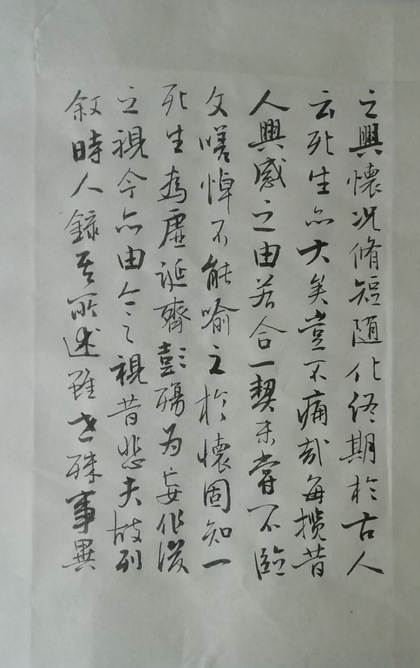 之興懷况脩短隨化終期於古人
云死生亦大矣豈不痛哉每攬昔
人興感之由若合一契未嘗不臨
文嗟悼不能喻之於懷固知一
死生為虛誕齊彭殤為妄作後
之視今亦由今之視昔悲夫故列
敘時人錄其所述雖世殊事異